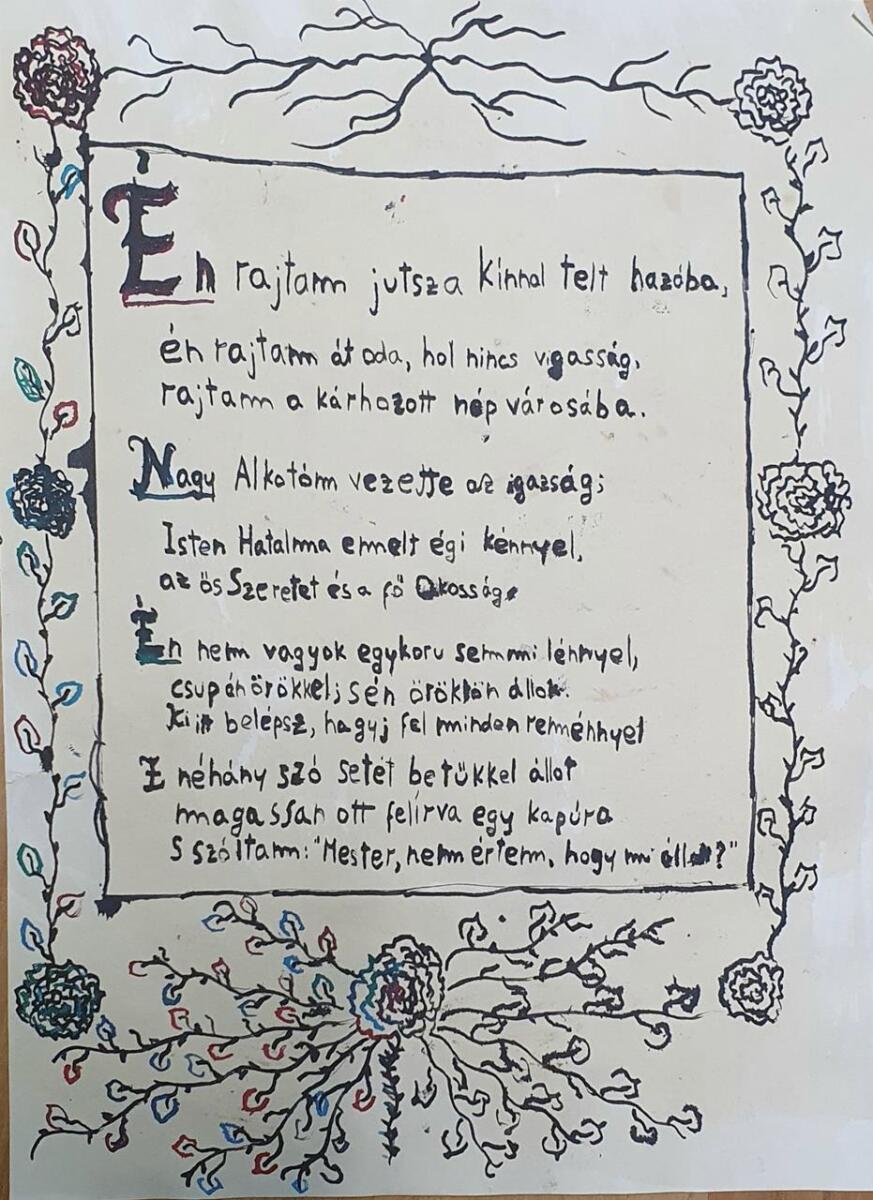 Én rajtam jutsz a kínnal telt hazába,
én rajtam át oda, hol nincs vigasság,
rajtam a kárhozott nép városába.
Nagy Alkotóm vezette az igazság;
Isten Hatalma emelt égi kénnyel,
az ős Szeretet és a fő Okosság.
Én nem vagyok egykoru semmi lénnyel,
csupán örökkel; s én öröktön állok.
Ki itt belépsz, hagyj fel minden reménnyel
E néhány szó setét betűkkel állot
magassan ott felírva egy kapúra
S szóltam: "Mester, nem értem, hogy mi áll ?"